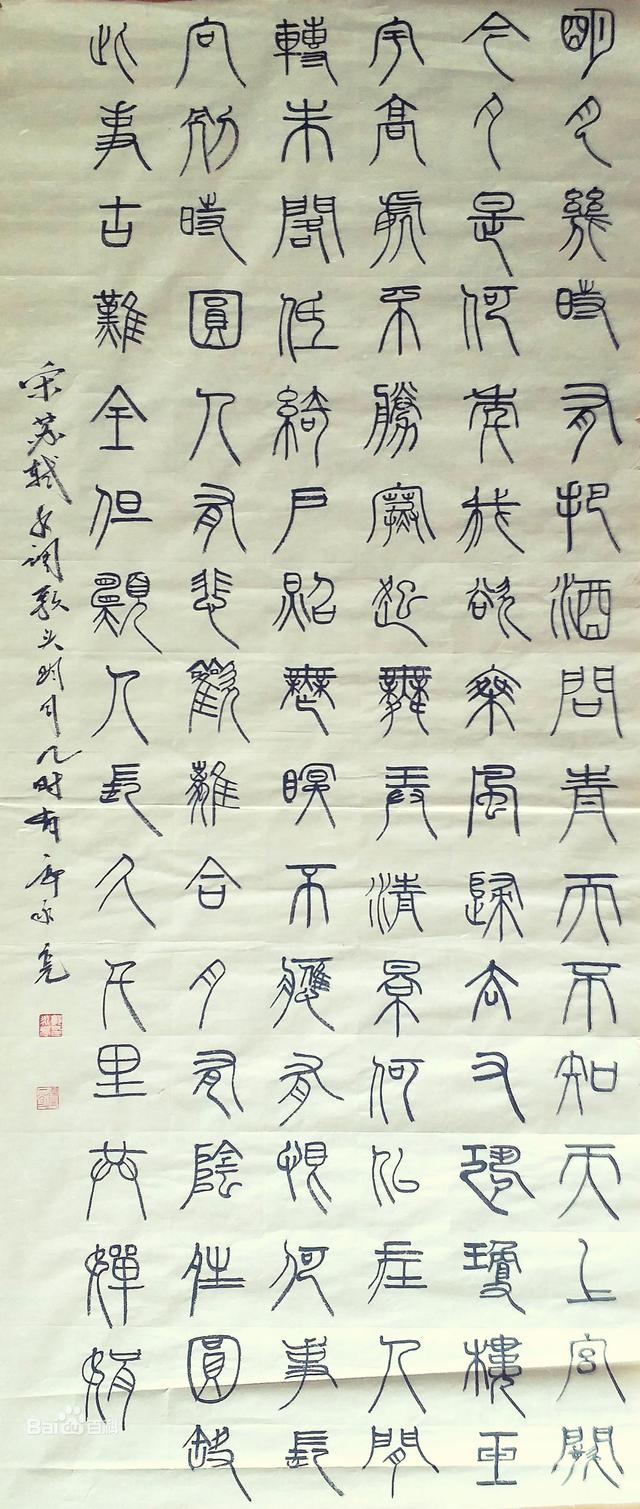 明月幾時有把酒問青天不知天上宮闕
今夕是何年我欲乘風歸去又恐瓊樓玉
宇高處不勝寒起舞弄清景何似在人間
轉朱閣低綺戶照無瞑不應有恨何事長
向別時圓人有悲歡離合月有陰晴圓缺
此事古難全但願人長久千里共嬋娟
宋苏轼水调歌头明月几时有
Baidu百科